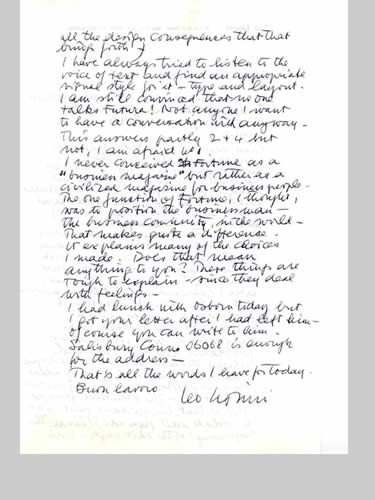 all the design consequences that that
brings forth —
I have always tried to listen to the
voice of text and find an appropriate
visual style for it — type and layout.
I am still convinced that no one
talks Futura! Not anyone I want
to have a conversation with anyway —
This answers partly 2 + 4 but
not, I am afraid
I never conceived Fortune as a
"business magazine" but rather as a
civilized magazine for business people —
The one function of Fortune, I thought,
was to position the business man —
the business community, in the world —
That makes quite a difference.
It explains many of the choices
I made. Does that mean
anything to you? These things are
tough to explain — since they deal
with feelings —
I had lunch with Osborn today but
I got your letter after I had left him —
of course you can write to him.
Salisbury Conn 06068 is enough
for the address —
That's all the words I have for today.
Buon lavoro
Leo Lionni